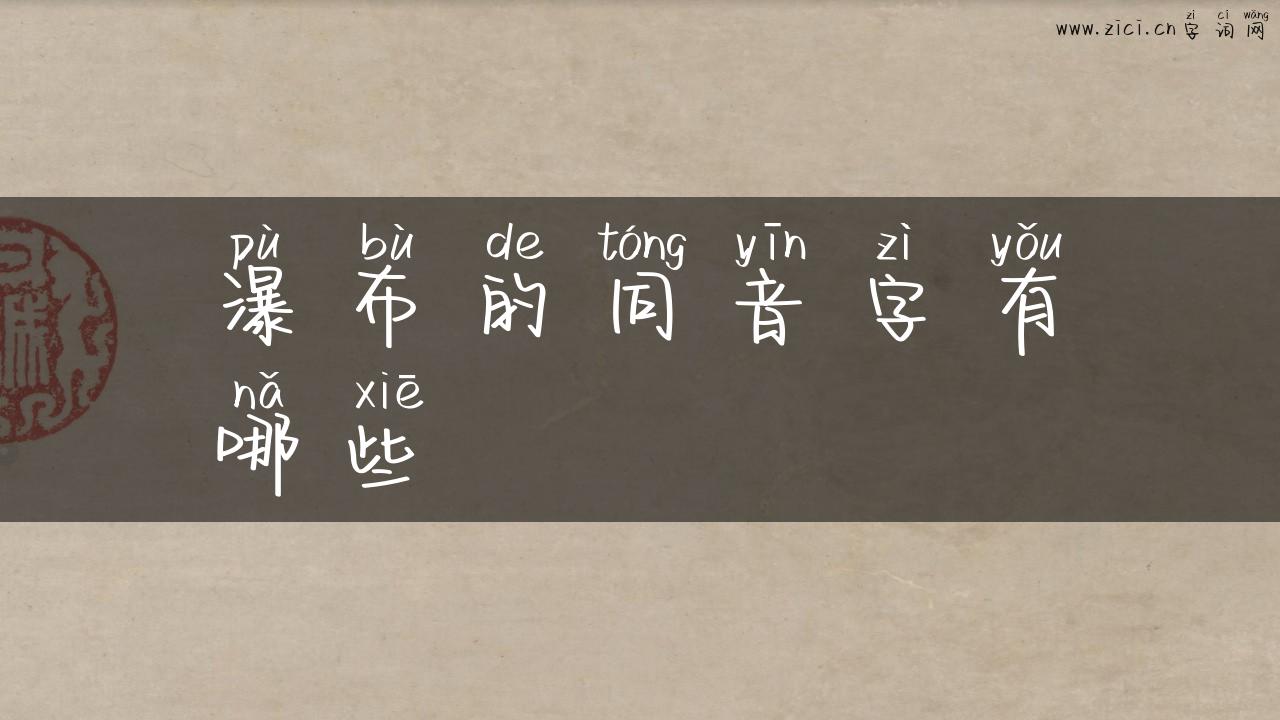 zì cí wǎng
www.zici.cn 字词网
pù bù de tóng yīn zì yǒu
瀑布的同音字有
nǎ xiē
哪些